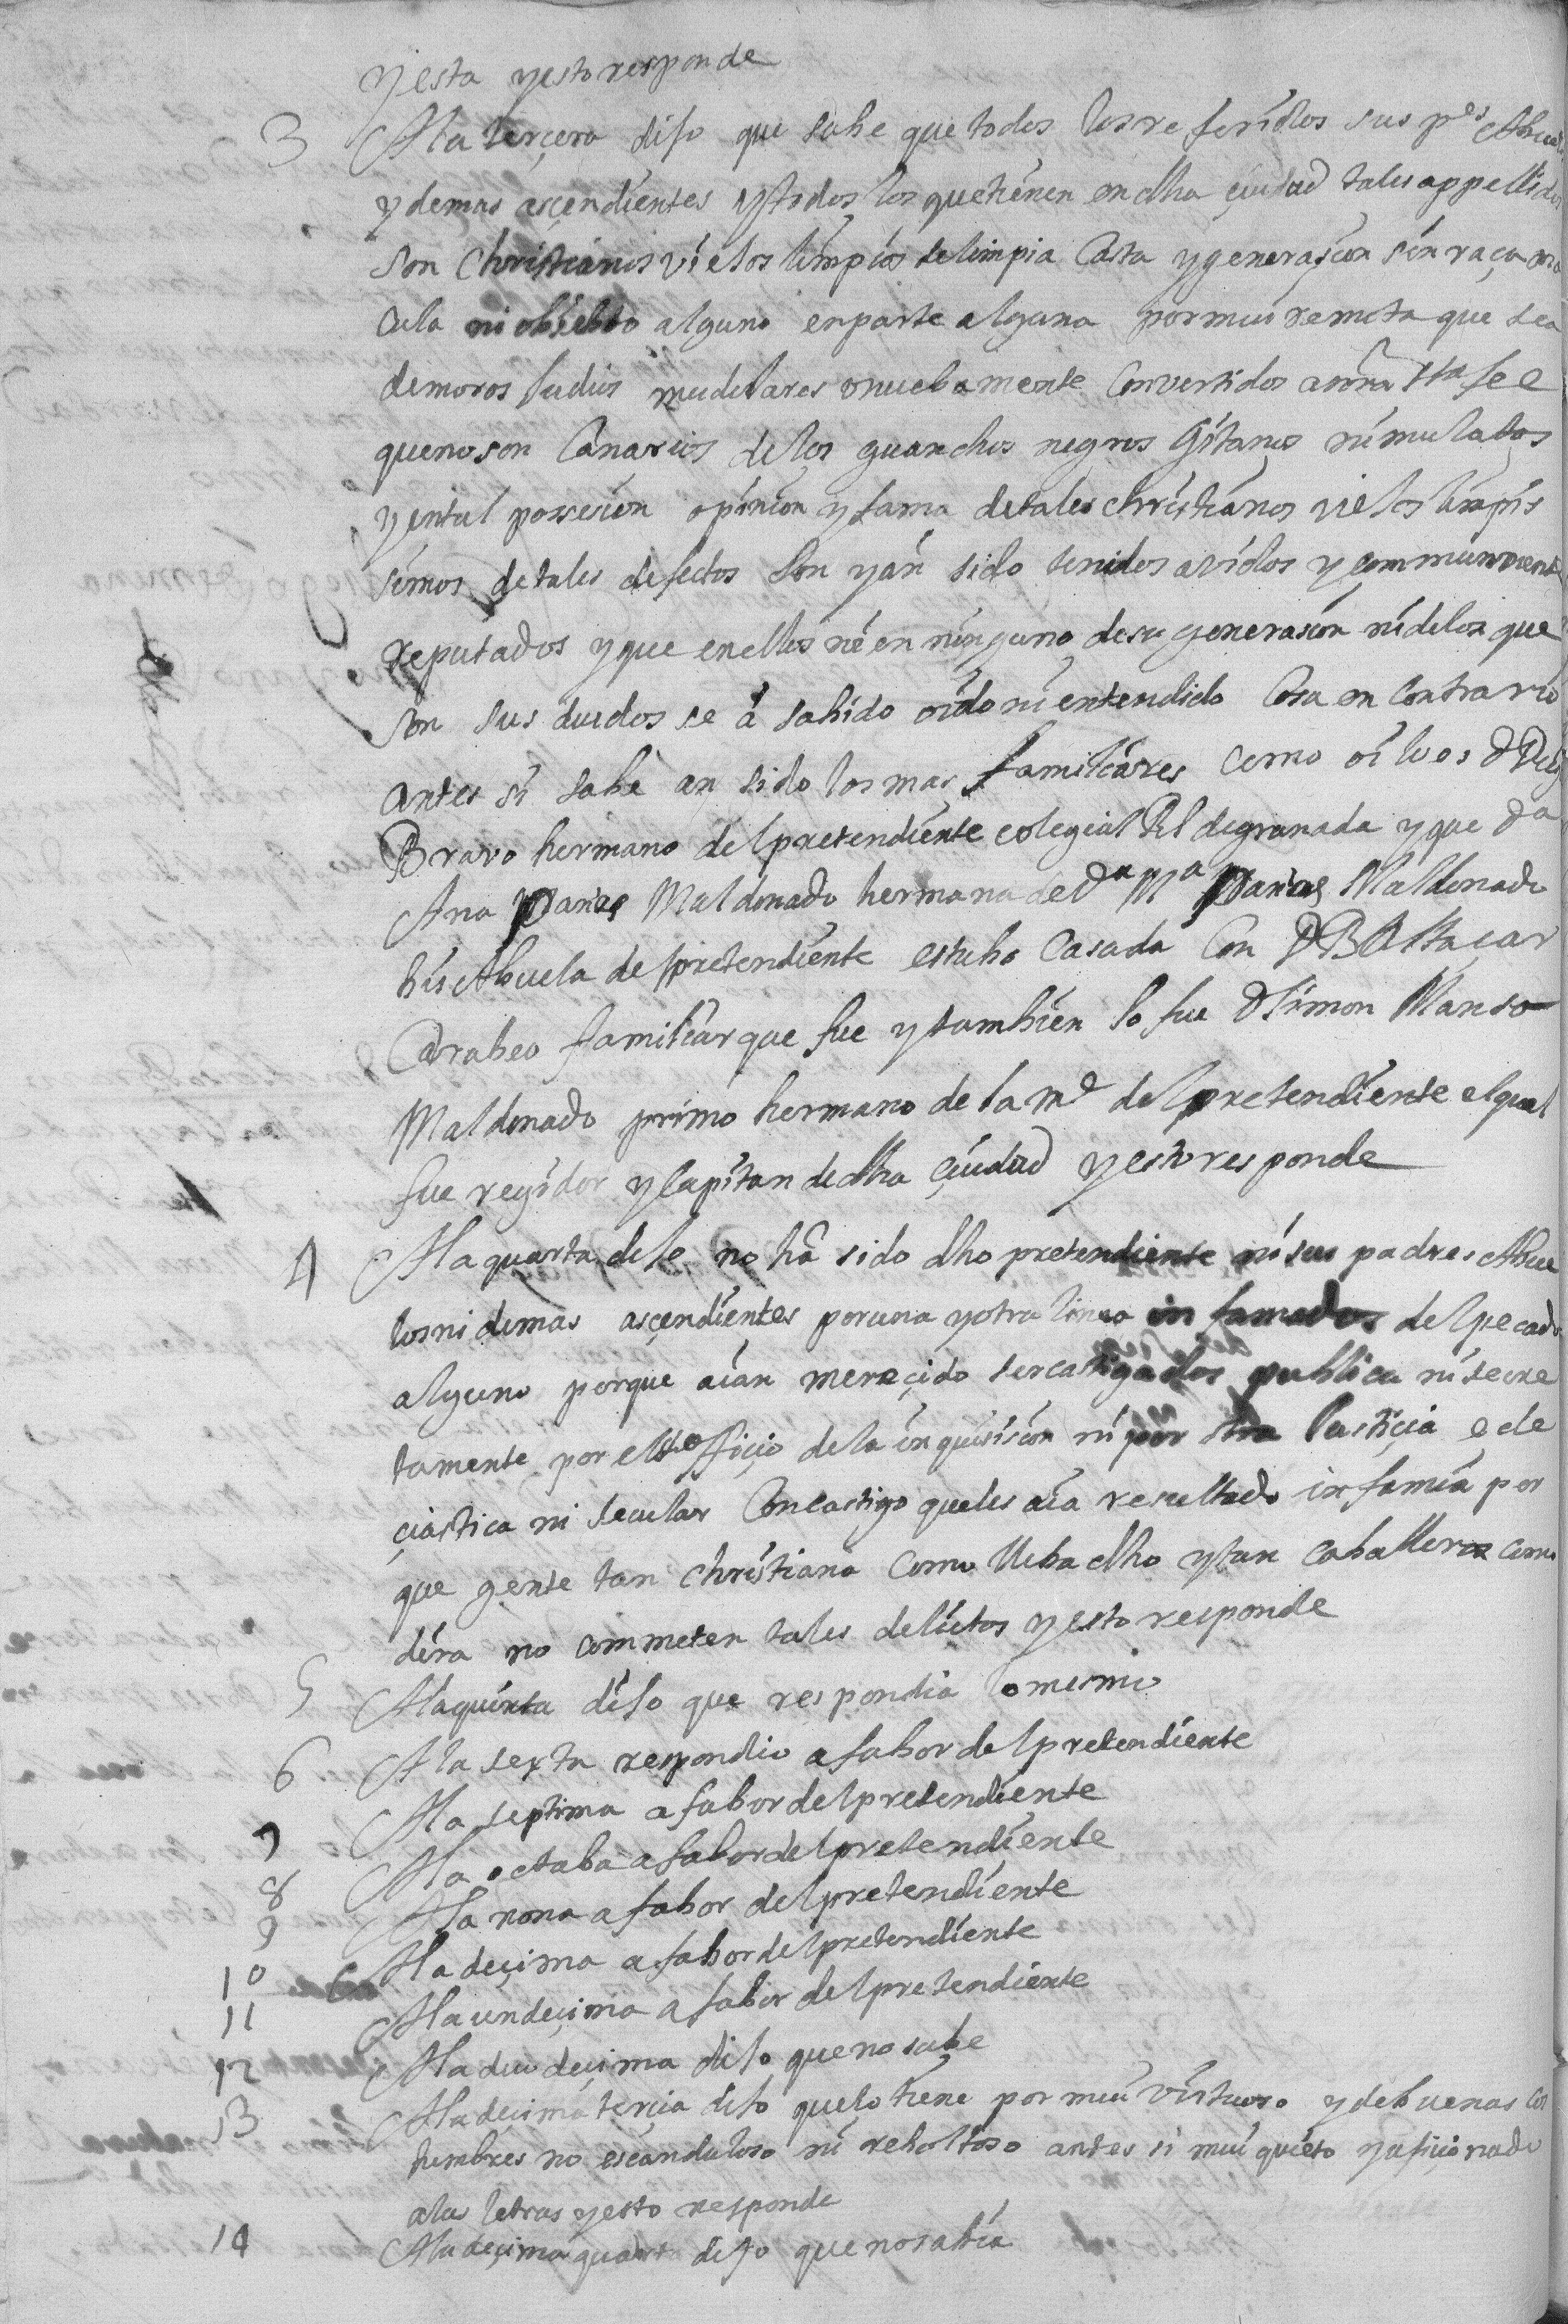 y esta y esto responde
3 A la terçera dijo que sabe que todos los referidos sus p.es Abue
y demas asçendientes y todos los que tienen en dha çiudad tales appellidos
son christianos viejos limpios de limpia casta y generaçion sin raça ma
cula ni obiebto alguno en parte alguna por mui remota que sea
de moros judios mudejares o nuebamente convertidos a nra sta fee
que no son Canarios de los guanchos negros Gitanos ni mulatos
y en tal possesion opinion y fama de tales christianos viejos limpis
simos de tales defectos son y an sido tenidos avidos y communment
reputados y que en ellos ni en ninguno de su generasion ni de los que
son sus duedos se á sabido oido ni entendido cosa en contrario
antes si sabe an sido los mas familiares como oi lo es D
Bravo hermano del pretendiente colegial Rl de granada y que Da
Ana Parias Maldonado hermana de Da Ma Parias Maldonado
bis Abuela del pretendiente estubo casada con D BAltaçar
Carabeo familiar que fue y tambien lo fue D Simon Manso
Maldonado primo hermano de la me del pretendiente el qual
fue regidor y Capitan de dha çiudad y esto responde
4 A la quarta dije no há sido dho pretendiente ni sus padres Abue
los ni demas asçendientes por una y otra linea in famados del pecado
alguno porque aian mereçido ser castigados publica ni secre
tamente por el sto offiçio de la inquisision ni por otra Justiçia ecle
çiastica ni secular con castigo que les aia resultado infamia por
que gente tan christiana como lleba dho y tan caballeroz como
dira no commeten tales delictos y esto responde
5 A la quinta dijo que respondia lo mesmo
6 A la sexta respondio a fabor del pretendiente
7 A la septima a fabor del pretendiente
8 A la octaba a fabor del pretendiente
9 A la nona a fabor del pretendiente
10 A la deçima a fabor del pretendiente
11 A la undeçima a fabor del pretendiente
12 A la duodeçima dijo que no sabe
13 A la deçima terçia dijo que lo tiene por mui virtuoso y de buenas cos
tumbres no escandaloso ni reboltoso antes si mui quieto y afiçionado
a las letras y esto responde
14 A la deçima quarta dijo que no sabia